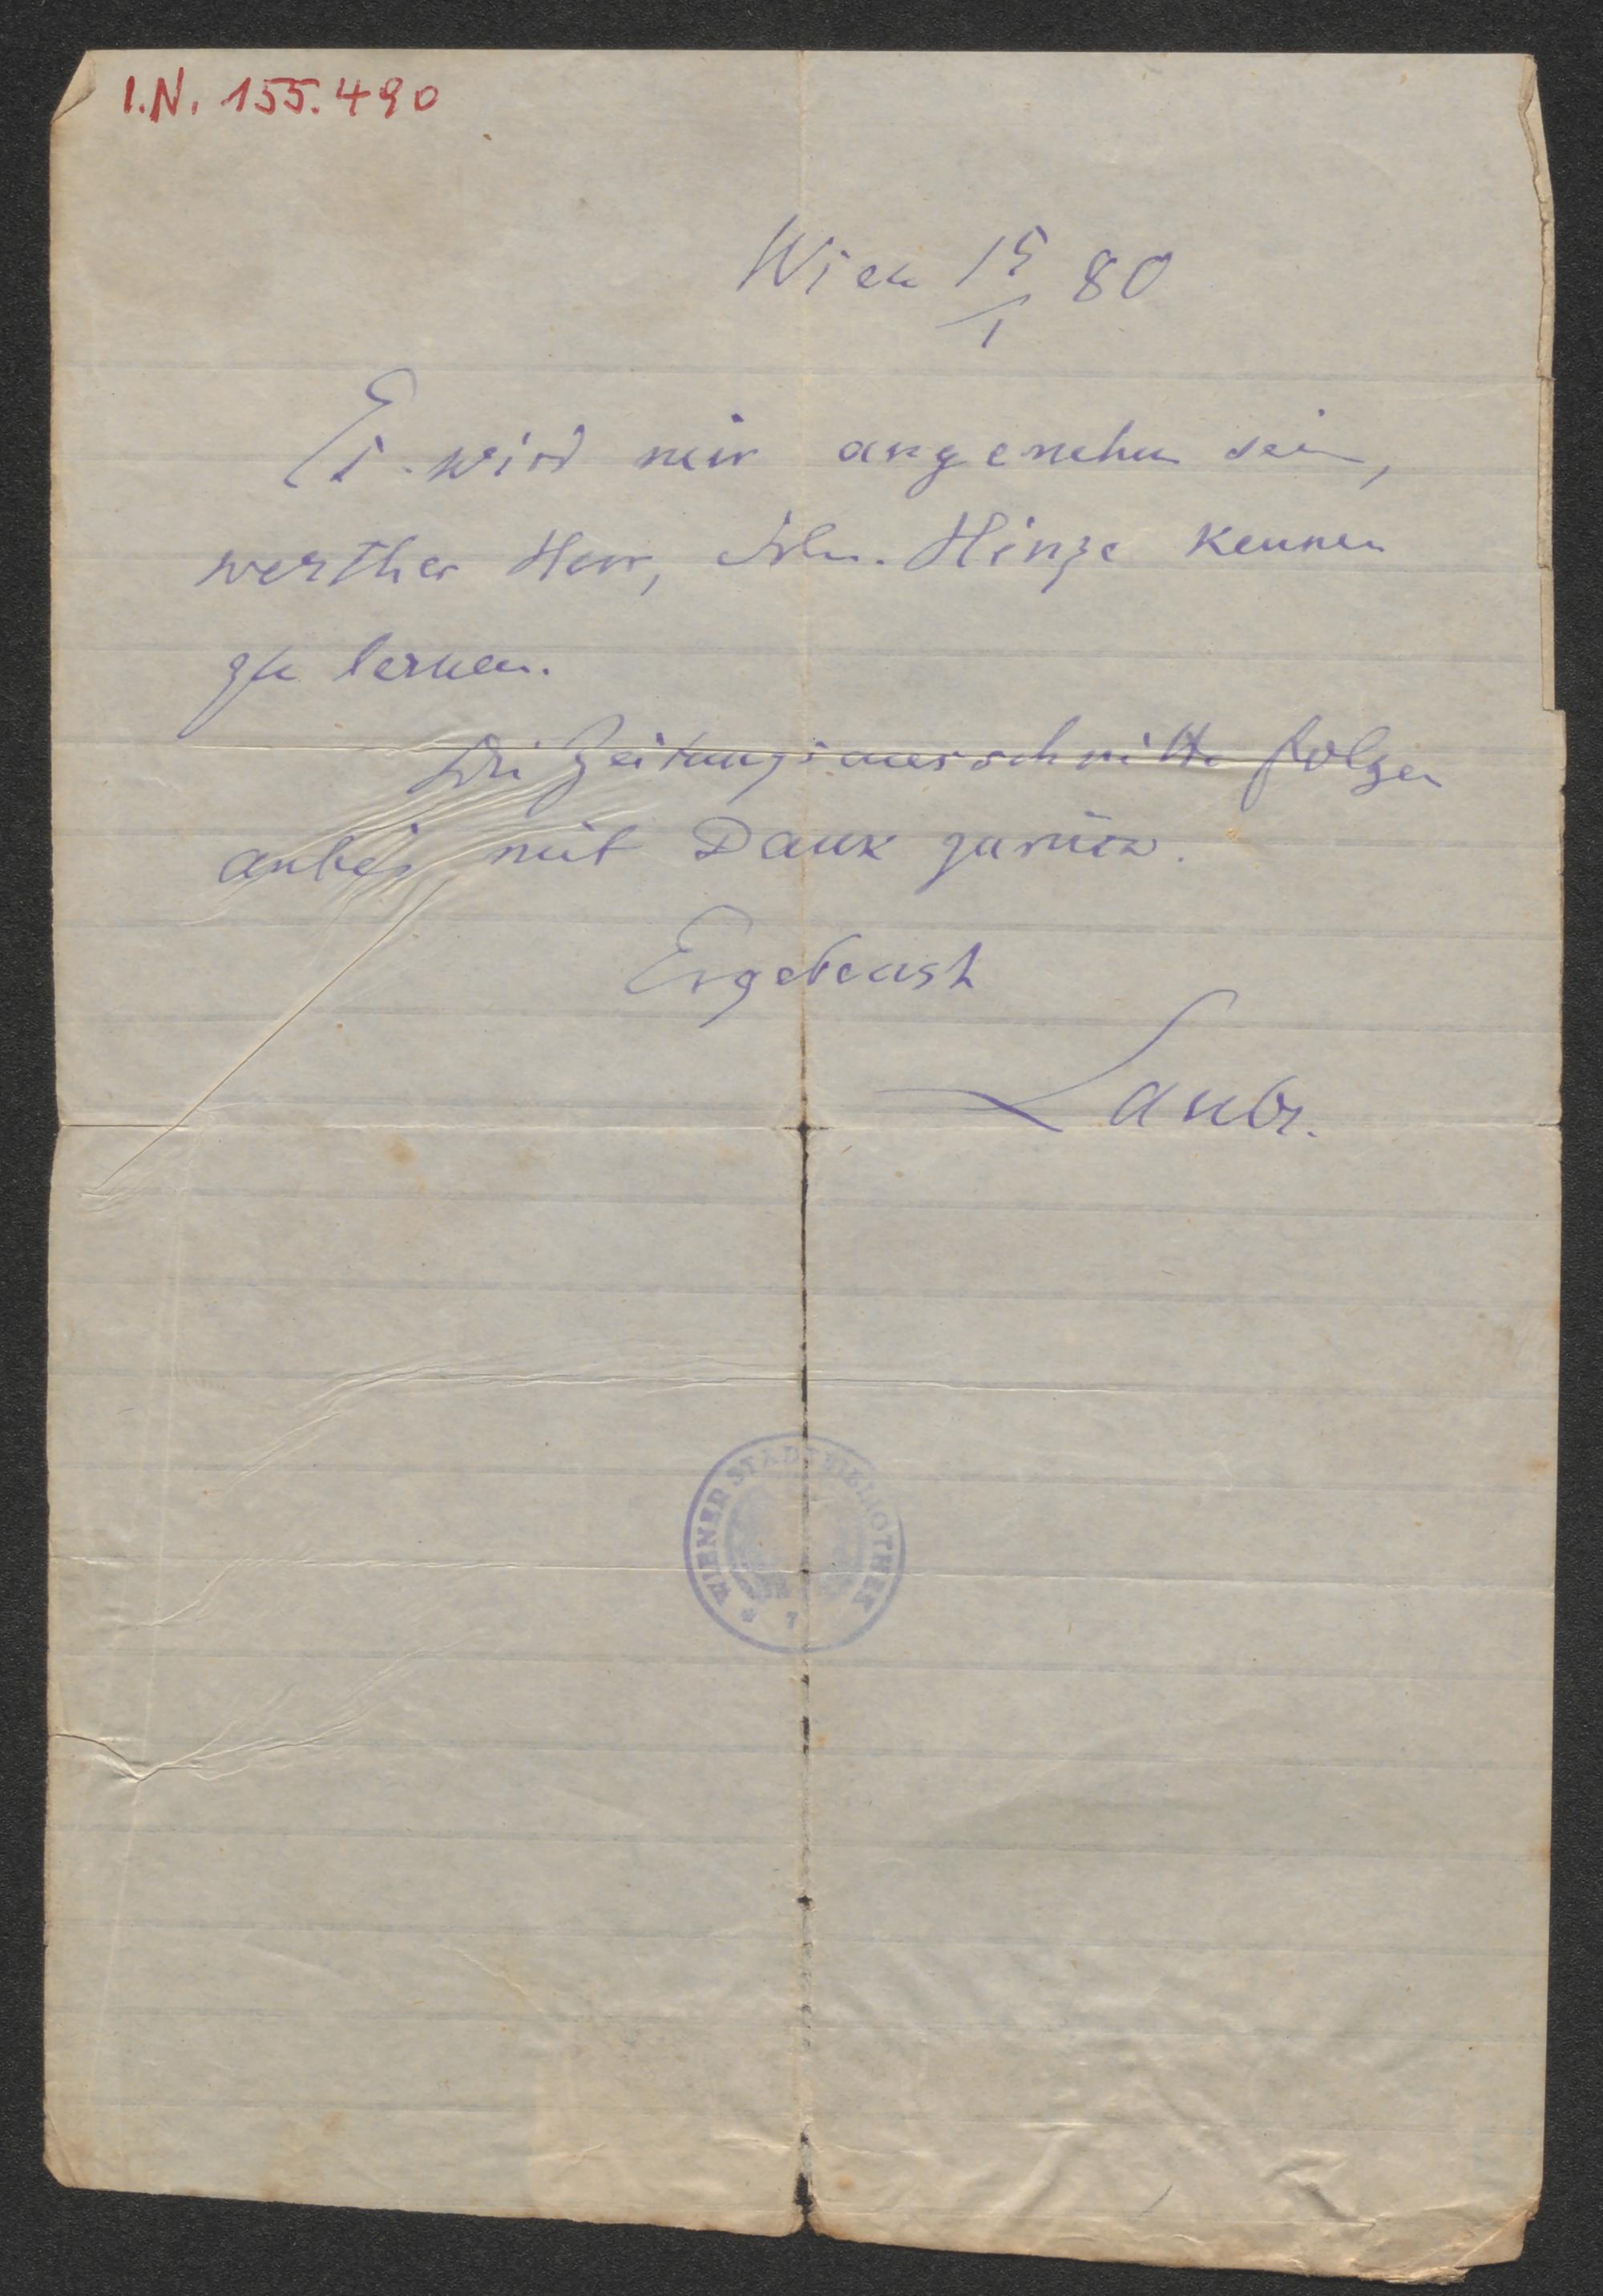 I.N. 155.490
Wien 15/1 80
Es wird mir angenehm sein,
werther Herr, Frln. Hinze kennen
zu lernen.
Die Zeitungsausschnitte folgen
anbei mit Dank zurück.
Ergebenst
Laube.
WIENER STADTBIBLIOTHEK
* 7